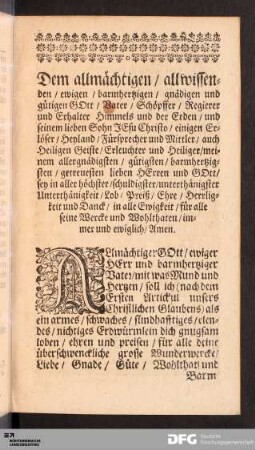 Dem allmächtigen / allwissen-
den / ewigen / barmhertzigen / gnädigen und
gütigen GOtt / Vater / Schöpffer / Regierer
und Erhalter Himmels und der Erden / und
seinem lieben Sohn JEsu Christo / einigen Er-
löser / Heyland / Fürsprecher und Mittler / auch
Heiligen Geiste / Erleuchter und Heiliger / mei-
nem allergnädigsten / gütigsten / barmhertzig-
sten / getreuesten lieben HErren und GOtt /
sey in aller höchster / schuldigster / unterthänigster
Unterthänigkeit / Lob / Preiß / Ehre / Herrlig-
keit und Danck / in alle Ewigkeit / für alle
seine Wercke und Wohlthaten / im-
mer und ewiglich / Amen.
ALlmächtiger GOtt / ewiger
HErr und barmhertziger
Vater / mit was Mund und
Hertzen / soll ich (nach dem
Ersten Artickul unsers
Christlichen Glaubens) als
ein armes / schwaches / sündhafftiges / elen-
des / nichtiges Erdwürmlein dich gnugsam
loben / ehren und preisen / für alle deine
überschwenckliche grosse Wunderwercke /
Liebe / Gnade / Güte / Wohlthat und
Barm
DFG
Deutsche
Forschungsgemeinschaft